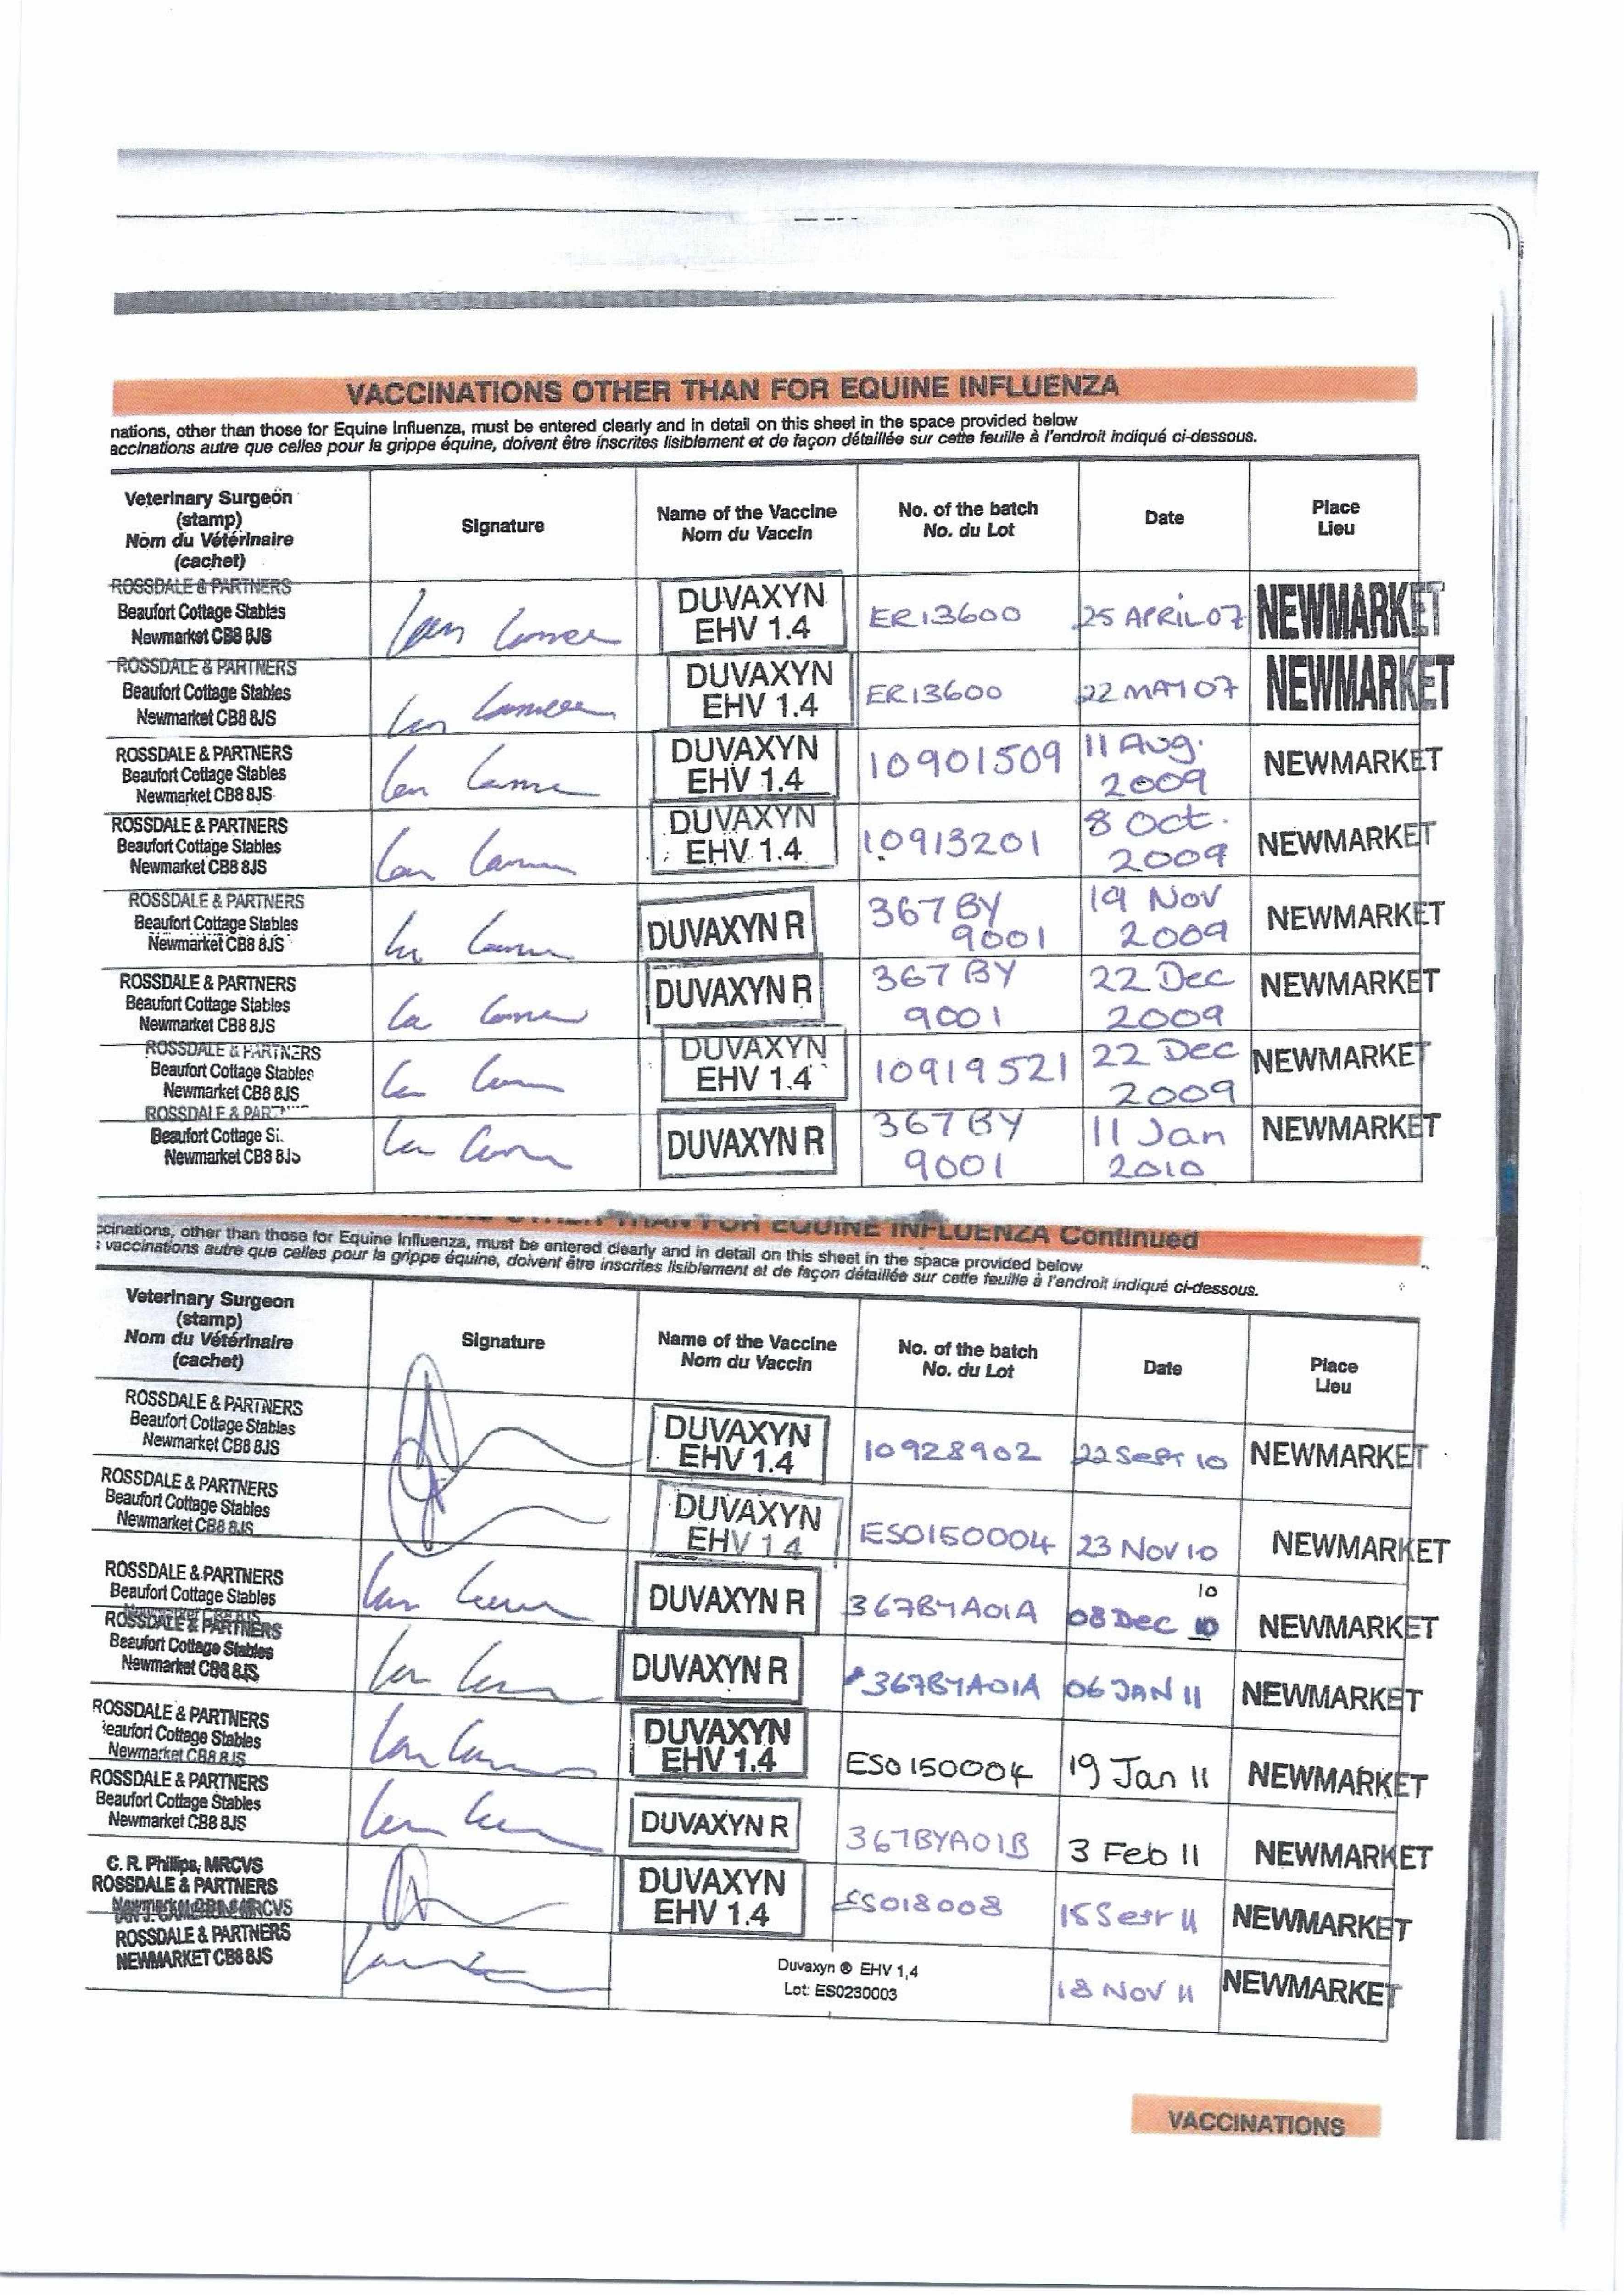 VACCINATIONS OTHER THAN FOR EQUINE INFLUENZA
nations, other than those for Equine Influenza, must be entered clearly and in detail on this sheet in the space provided below
accinations autre que celles pour la grippe équine, doivent être inscrites lisiblement et de façon détaillée sur cette feuille à l'endroit indiqué ci-dessous.
Veterinary Surgeon
(stamp)
Nom du Vétérinaire
(cachet)
Signature
Name of the Vaccine
Nom du Vaccin
No. of the batch
No. du Lot
Date
Place
Lieu
ROSSDALE & PARTNERS
Beaufort Cottage Stables
Newmarket CB8 8JS
DUVAXYN
EHV 1.4
ER13600
25 APRIL 07
NEWMARKET
ROSSDALE & PARTNERS
Beaufort Cottage Stables
Newmarket CB8 8JS
DUVAXYN
EHV 1.4
ER13600
22 MAY 07
NEWMARKET
ROSSDALE & PARTNERS
Beaufort Cottage Stables
Newmarket CB8 8JS
DUVAXYN
EHV 1.4
10901509
11 Aug.
2009
NEWMARKET
ROSSDALE & PARTNERS
Beaufort Cottage Stables
Newmarket CB8 8JS
DUVAXYN
EHV 1.4
10913201
8 Oct.
2009
NEWMARKET
ROSSDALE & PARTNERS
Beaufort Cottage Stables
Newmarket CB8 8JS
DUVAXYN R
367 BY
9001
19 Nov
2009
NEWMARKET
ROSSDALE & PARTNERS
Beaufort Cottage Stables
Newmarket CB8 8JS
DUVAXYN R
367 BY
9001
22 Dec
2009
NEWMARKET
ROSSDALE & PARTNERS
Beaufort Cottage Stables
Newmarket CB8 8JS
DUVAXYN
EHV 1.4
10919521
22 Dec
2009
NEWMARKET
ROSSDALE & PART
Beaufort Cottage
Newmarket CB8 8JS
DUVAXYN R
367 BY
9001
11 Jan
2010
NEWMARKET
THAN FOR EQUINE INFLUENZA Continued
ccinations, other than those for Equine Influenza, must be entered clearly and in detail on this sheet in the space provided below
vaccinations autre que celles pour la grippe équine, doivent être inscrites lisiblement et de façon détaillée sur cette feuille à l'endroit indiqué ci-dessous.
Veterinary Surgeon
(stamp)
Nom du Vétérinaire
(cachet)
Signature
Name of the Vaccine
Nom du Vaccin
No. of the batch
No. du Lot
Date
Place
Lieu
ROSSDALE & PARTNERS
Beaufort Cottage Stables
Newmarket CB8 8JS
DUVAXYN
EHV 1.4
10928902
22 Sept 10
NEWMARKET
ROSSDALE & PARTNERS
Beaufort Cottage Stables
Newmarket CB8 8JS
DUVAXYN
EHV 1 4
ESO150004
23 Nov 10
NEWMARKET
ROSSDALE & PARTNERS
Beaufort Cottage Stables
DUVAXYN R
367BYA01A
10
08 Dec 10
NEWMARKET
ROSSDALE & PARTNERS
Beaufort Cottage Stables
Newmarket CB8 8JS
DUVAXYN R
367BYA01A
06 JAN 11
NEWMARKET
ROSSDALE & PARTNERS
eaufort Cottage Stables
Newmarket CB8 8JS
DUVAXYN
EHV 1.4
ESO150004
19 Jan 11
NEWMARKET
ROSSDALE & PARTNERS
Beaufort Cottage Stables
Newmarket CB8 8JS
DUVAXYN R
367BYA01B
3 Feb 11
NEWMARKET
C. R. Phillips, MRCVS
ROSSDALE & PARTNERS
DUVAXYN
EHV 1.4
ES018008
15 Sept 11
NEWMARKET
ROSSDALE & PARTNERS
NEWMARKET CB8 8JS
Duvaxyn ® EHV 1,4
Lot: ES0230003
18 Nov 11
NEWMARKET
VACCINATIONS